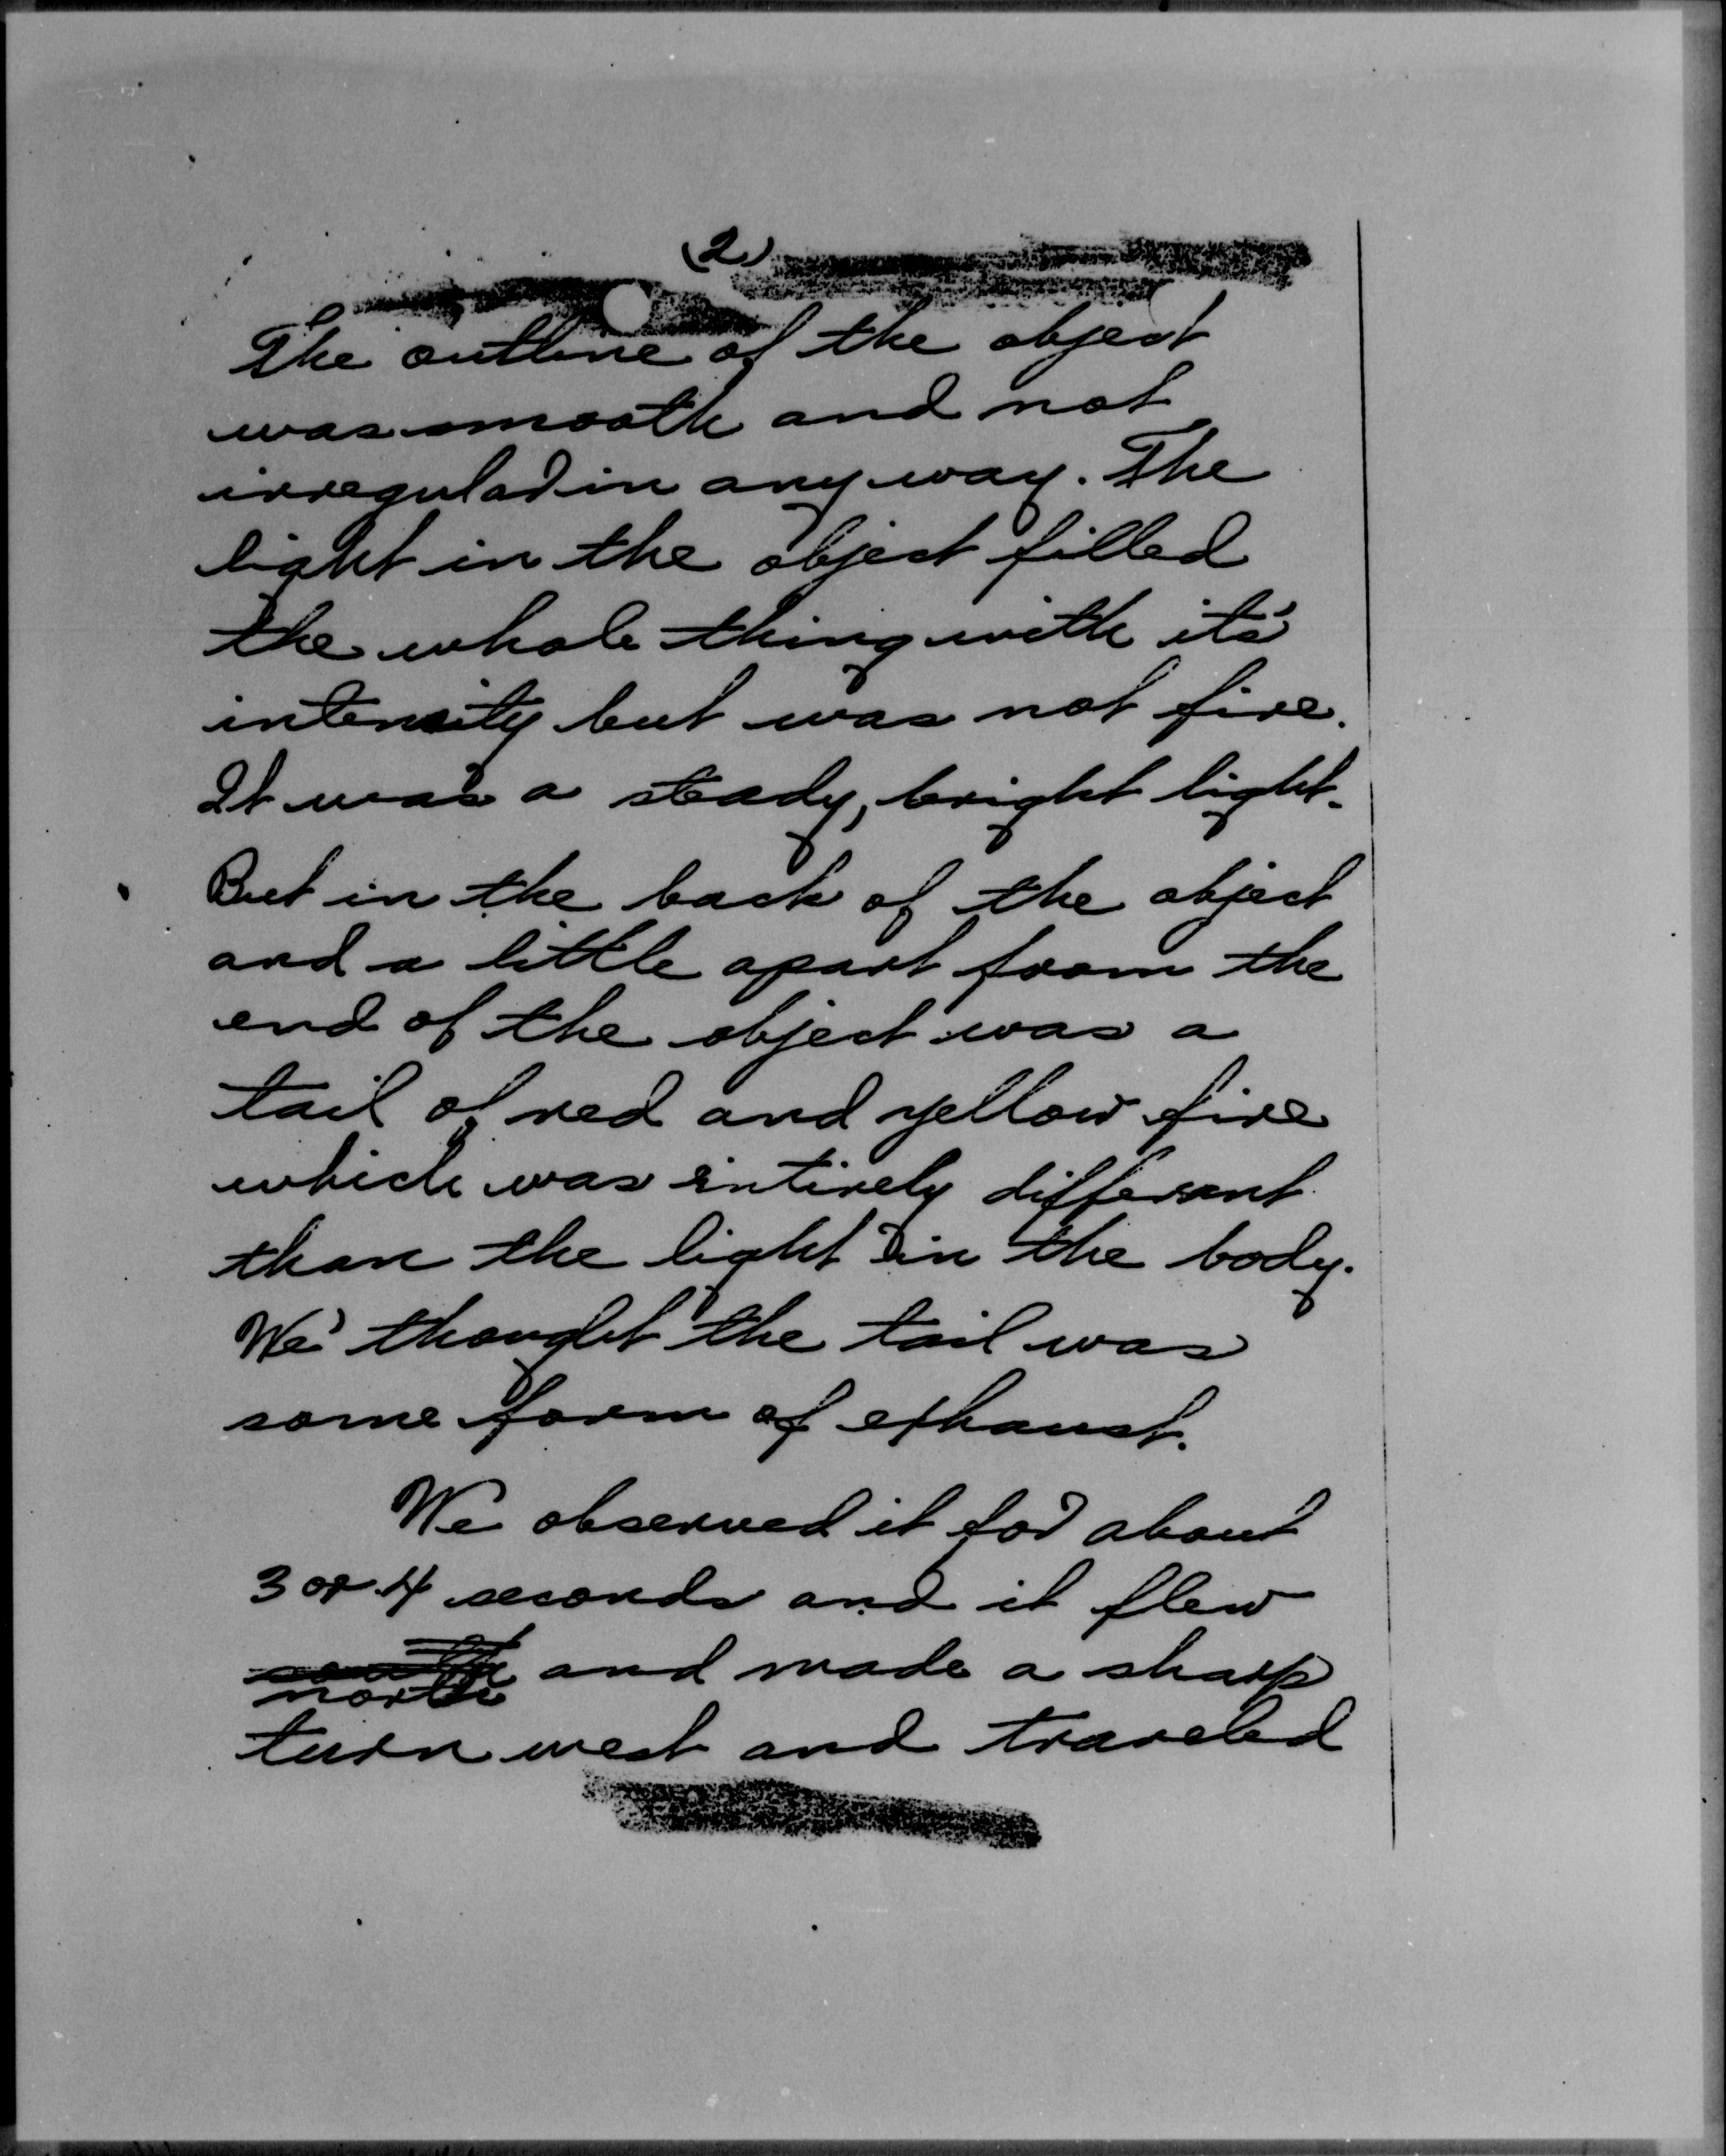 (2)
The outline of the object
was smooth and not
irregular in any way. The
light in the object filled
the whole thing with it's
intensity but was not fire.
It was a steady, bright light.
But in the back of the object
and a little apart from the
end of the object was a
tail of red and yellow fire
which was entirely different
than the light in the body.
We thought the tail was
some form of exhaust.
We observed it for about
3 or 4 seconds and it flew
south and made a sharp
north
turn west and traveled